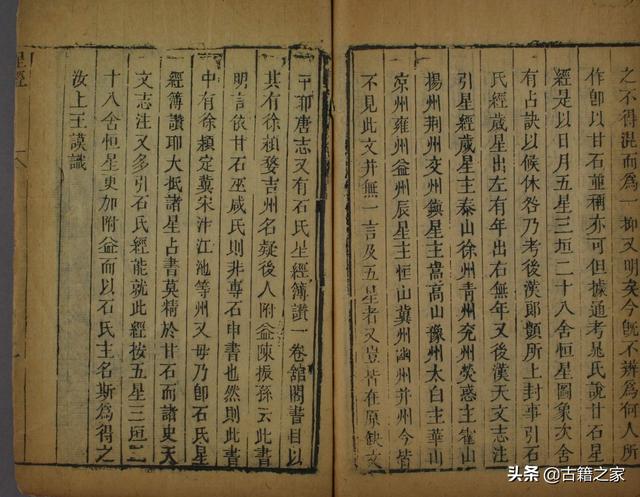 之不得混而為一抑又明矣今旣不辨為何人所
作卽以甘石並稱亦可但據通考晁氏說甘石星
經是以日月五星三垣二十八舍恒星圖象次舍
有占訣以候休咎乃考後漢郎顗所上封事引石
氏經歲星出左有年出右無年又後漢天文志注
引星經歲星主泰山徐州青州兗州熒惑主霍山
揚州荆州交州鎭星主嵩高山豫州太白主華山
凉州雍州益州辰星主恒山冀州幽州并州今皆
不見此文并無一言及五星者又豈皆在原缺文
二十耶唐志又有石氏星經簿讚一卷舘閣書目以
其有徐頴婺吉州名疑後人附益陳振孫云此書
明言依甘石巫咸氏則非專石申書也然則此書
中有徐頴定冀宋汴江池等州又毋乃卽石氏星
經簿讚耶大抵諸星占書莫精於甘石而諸史天
文志注又多引石氏經能就此經按五星三垣二
十八舍恒星更加附益而以石氏主名斯為得之
汝上王謨識
星經
头条@古籍之家